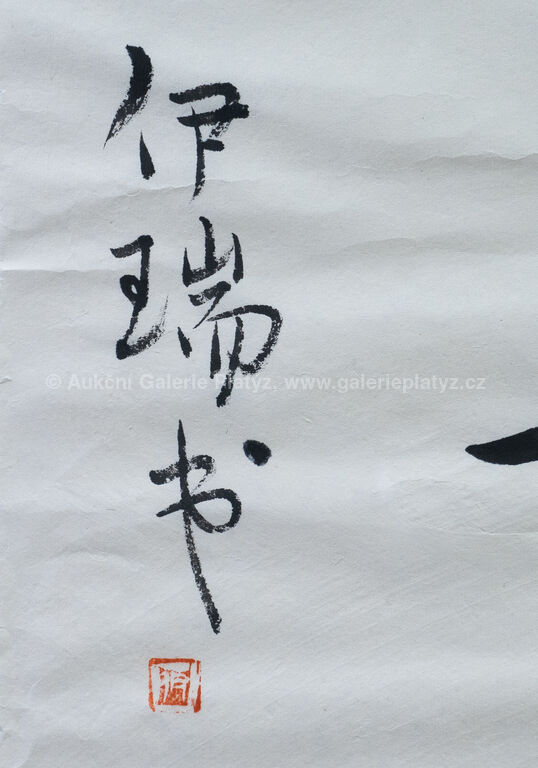 伊瑞书
© Aukční Galerie Platýz, www.galerieplatyz.cz